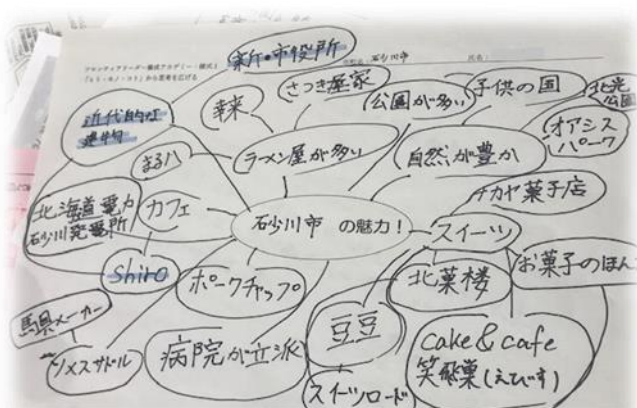 フロンティアリーダー養成アカデミー：様式1
「ヒト・モノ・コト」から思考を広げる
石砂川市
氏名：
新庁・市役所
近代的な
建物
幸来
さつき屋家
公園が多い
子供の国
北光
公園
オアシス
パーク
まる八
ラーメン屋が多い
自然が豊か
北海道電力
砂川発電所
カフェ
石砂川市 の魅力！
ナカヤ菓子店
スイーツ
shiro
ポークチャップ
北菓楼
お菓子のほんだ
馬具メーカー
ソメスサドル
病院が立派
豆豆
スイーツロード
cake & cafe
笑飛巣(えびす)